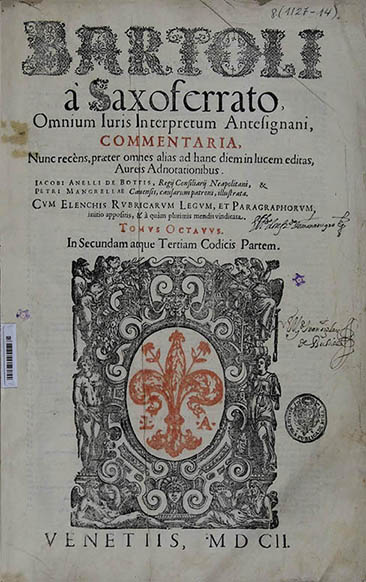 8(1127-14).
BARTOLI
à Saxoferrato,
Omnium Iuris Interpretum Antesignani,
COMMENTARIA,
Nunc recèns, præter omnes alias ad hanc diem in lucem editas,
Aureis Adnotationibus.
IACOBI ANELLI DE BOTTIS, Regij Consiliarij Neapolitani, &
PETRI MANGRELLAE Cauensis, causarum patroni, illustrata.
CVM ELENCHIS RVBRICARVM LEGVM, ET PARAGRAPHORVM,
initio appositis, & à quàm plurimis mendis vindicata.
TOMVS OCTAVVS.
In Secundam atque Tertiam Codicis Partem.
L A
VENETIIS, MDCII.